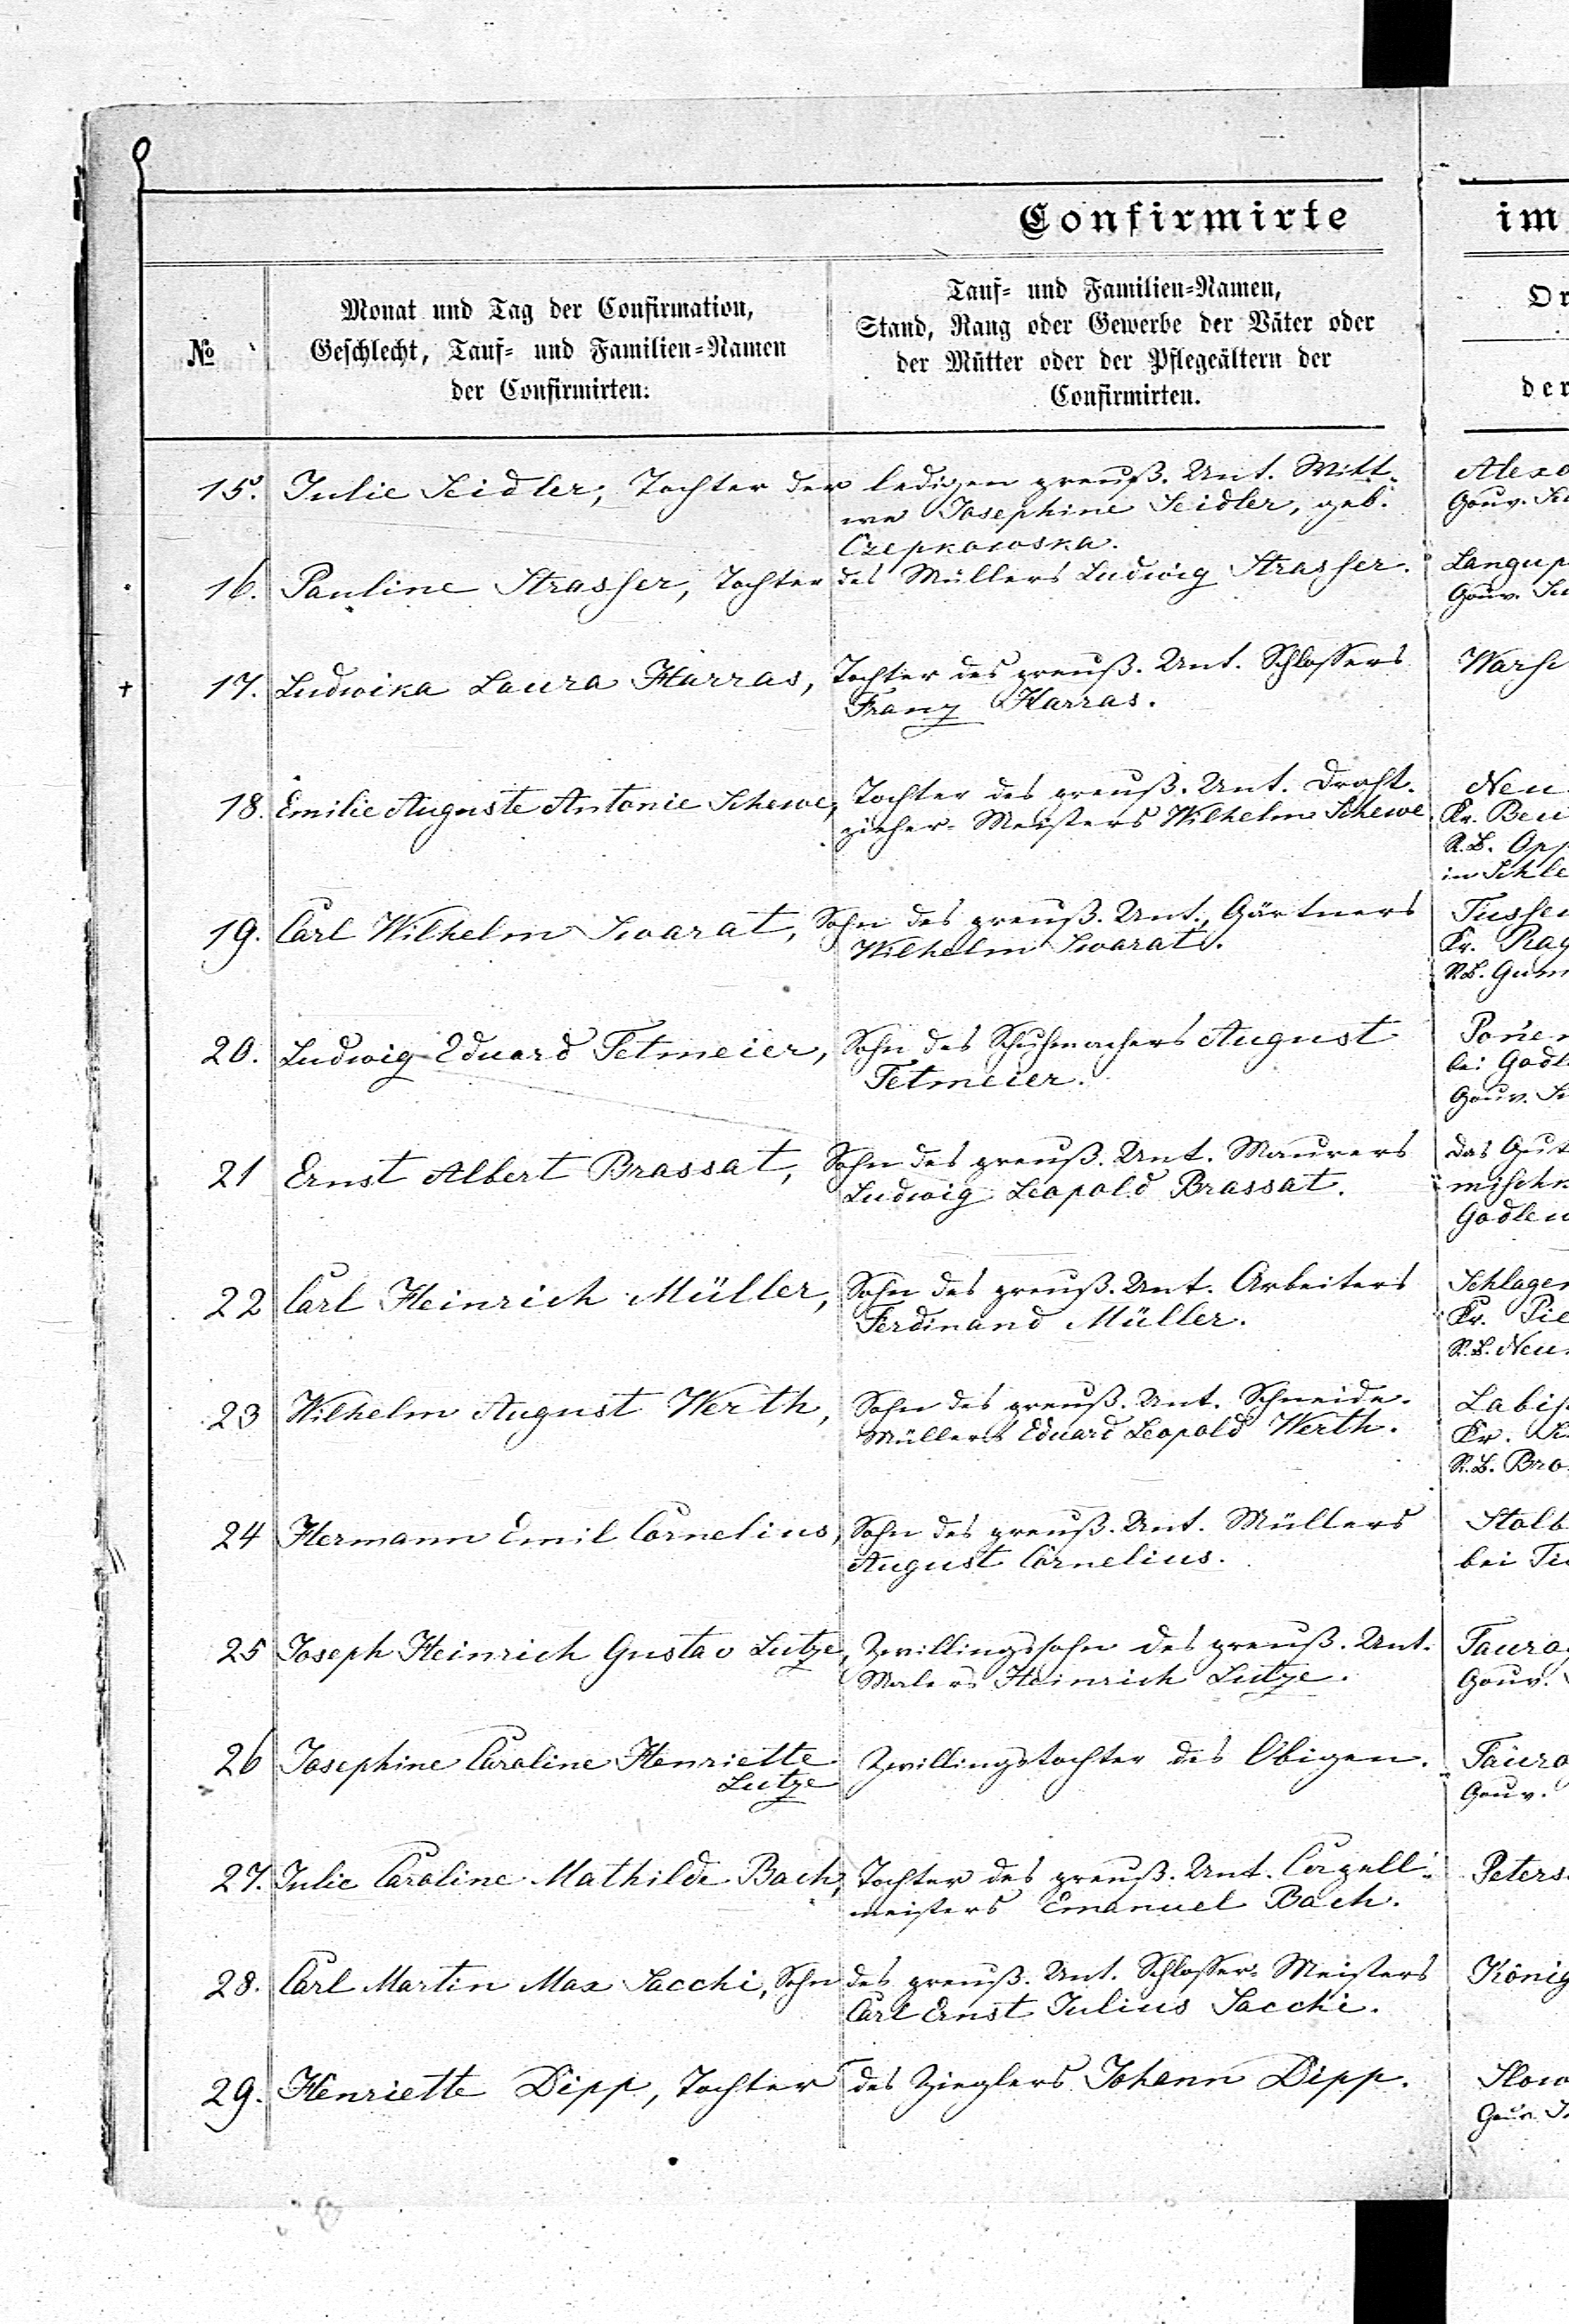 Confirmirte
im
№
Monat und Tag der Confirmation,
Geschlecht, Tauf- und Familien-Namen
der Confirmirten:
Tauf- und Familien-Namen,
Stand, Rang oder Gewerbe der Väter oder
der Mütter oder der Pflegeältern der
Confirmirten.
Or
der
15. Julie Seidler, Tochter der ledigen preuß. Unt. Witt-
we Josephine Seidler, geb.
Czepkowska.
Alexo
Gouv.
16. Pauline Strasser, Tochter des Müllers Ludwig Strasser.
Langup
Gouv.
17. Ludwika Laura Harras, Tochter des preuß. Unt. Schlossers
Franz Harras.
Warsc
18. Emilie Auguste Antonie Schewe, Tochter des preuß. Unt. Draht-
zieher-Meisters Wilhelm Schewe
Neu
Kr. Beu
R.B. Opp
in Schle
19. Carl Wilhelm Swarat, Sohn des preuß. Unt., Gärtners
Wilhelm Swarat.
Tussen
Kr. Rag
R.B. Gum
20. Ludwig Eduard Tetmeier, Sohn des Schuhmachers August
Tetmeier.
Ponem
bei Godl
Gouv.
21 Ernst Albert Brassat, Sohn des preuß. Unt. Maurers
Ludwig Leopold Brassat.
das Gut
mischk
Godlew
22 Carl Heinrich Müller, Sohn des preuß. Unt. Arbeiters
Ferdinand Müller.
Schlagen
Kr. Pie
R.B.
23 Wilhelm August Werth, Sohn des preuß. Unt. Schneide-
Müllers Eduard Leopold Werth.
Labis
Kr.
R.B. Bro
24 Hermann Emil Cornelius, Sohn des preuß. Unt. Müllers
August Cornelius.
Stolb
bei
25 Joseph Heinrich Gustav Lutze, Zwillingssohn des preuß. Unt.
Malers Heinrich Lutze.
Taurog
Gouv.
26 Josephine Caroline Henriette Zwillingstochter des Obigen.
Lutze
Tauro
Gouv.
27. Julie Caroline Mathilde Bach, Tochter des preuß. Unt. Capell-
meisters Emanuel Bach.
Peters
28. Carl Martin Max Sacchi, Sohn des preuß. Unt. Schlosser-Meisters
Carl Ernst Julius Sacchi.
König
29. Henriette Dipp, Tochter des Zieglers Johann Dipp.
Slow
Gouv.